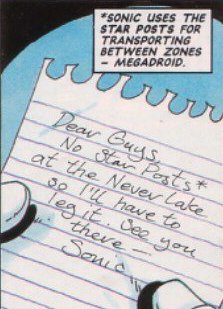 *SONIC USES THE
STAR POSTS FOR
TRANSPORTING
BETWEEN ZONES
– MEGADROID.
Dear Guys,
No Star Posts*
at the Never Lake
so I'll have to
leg it. See you
there —
Sonic